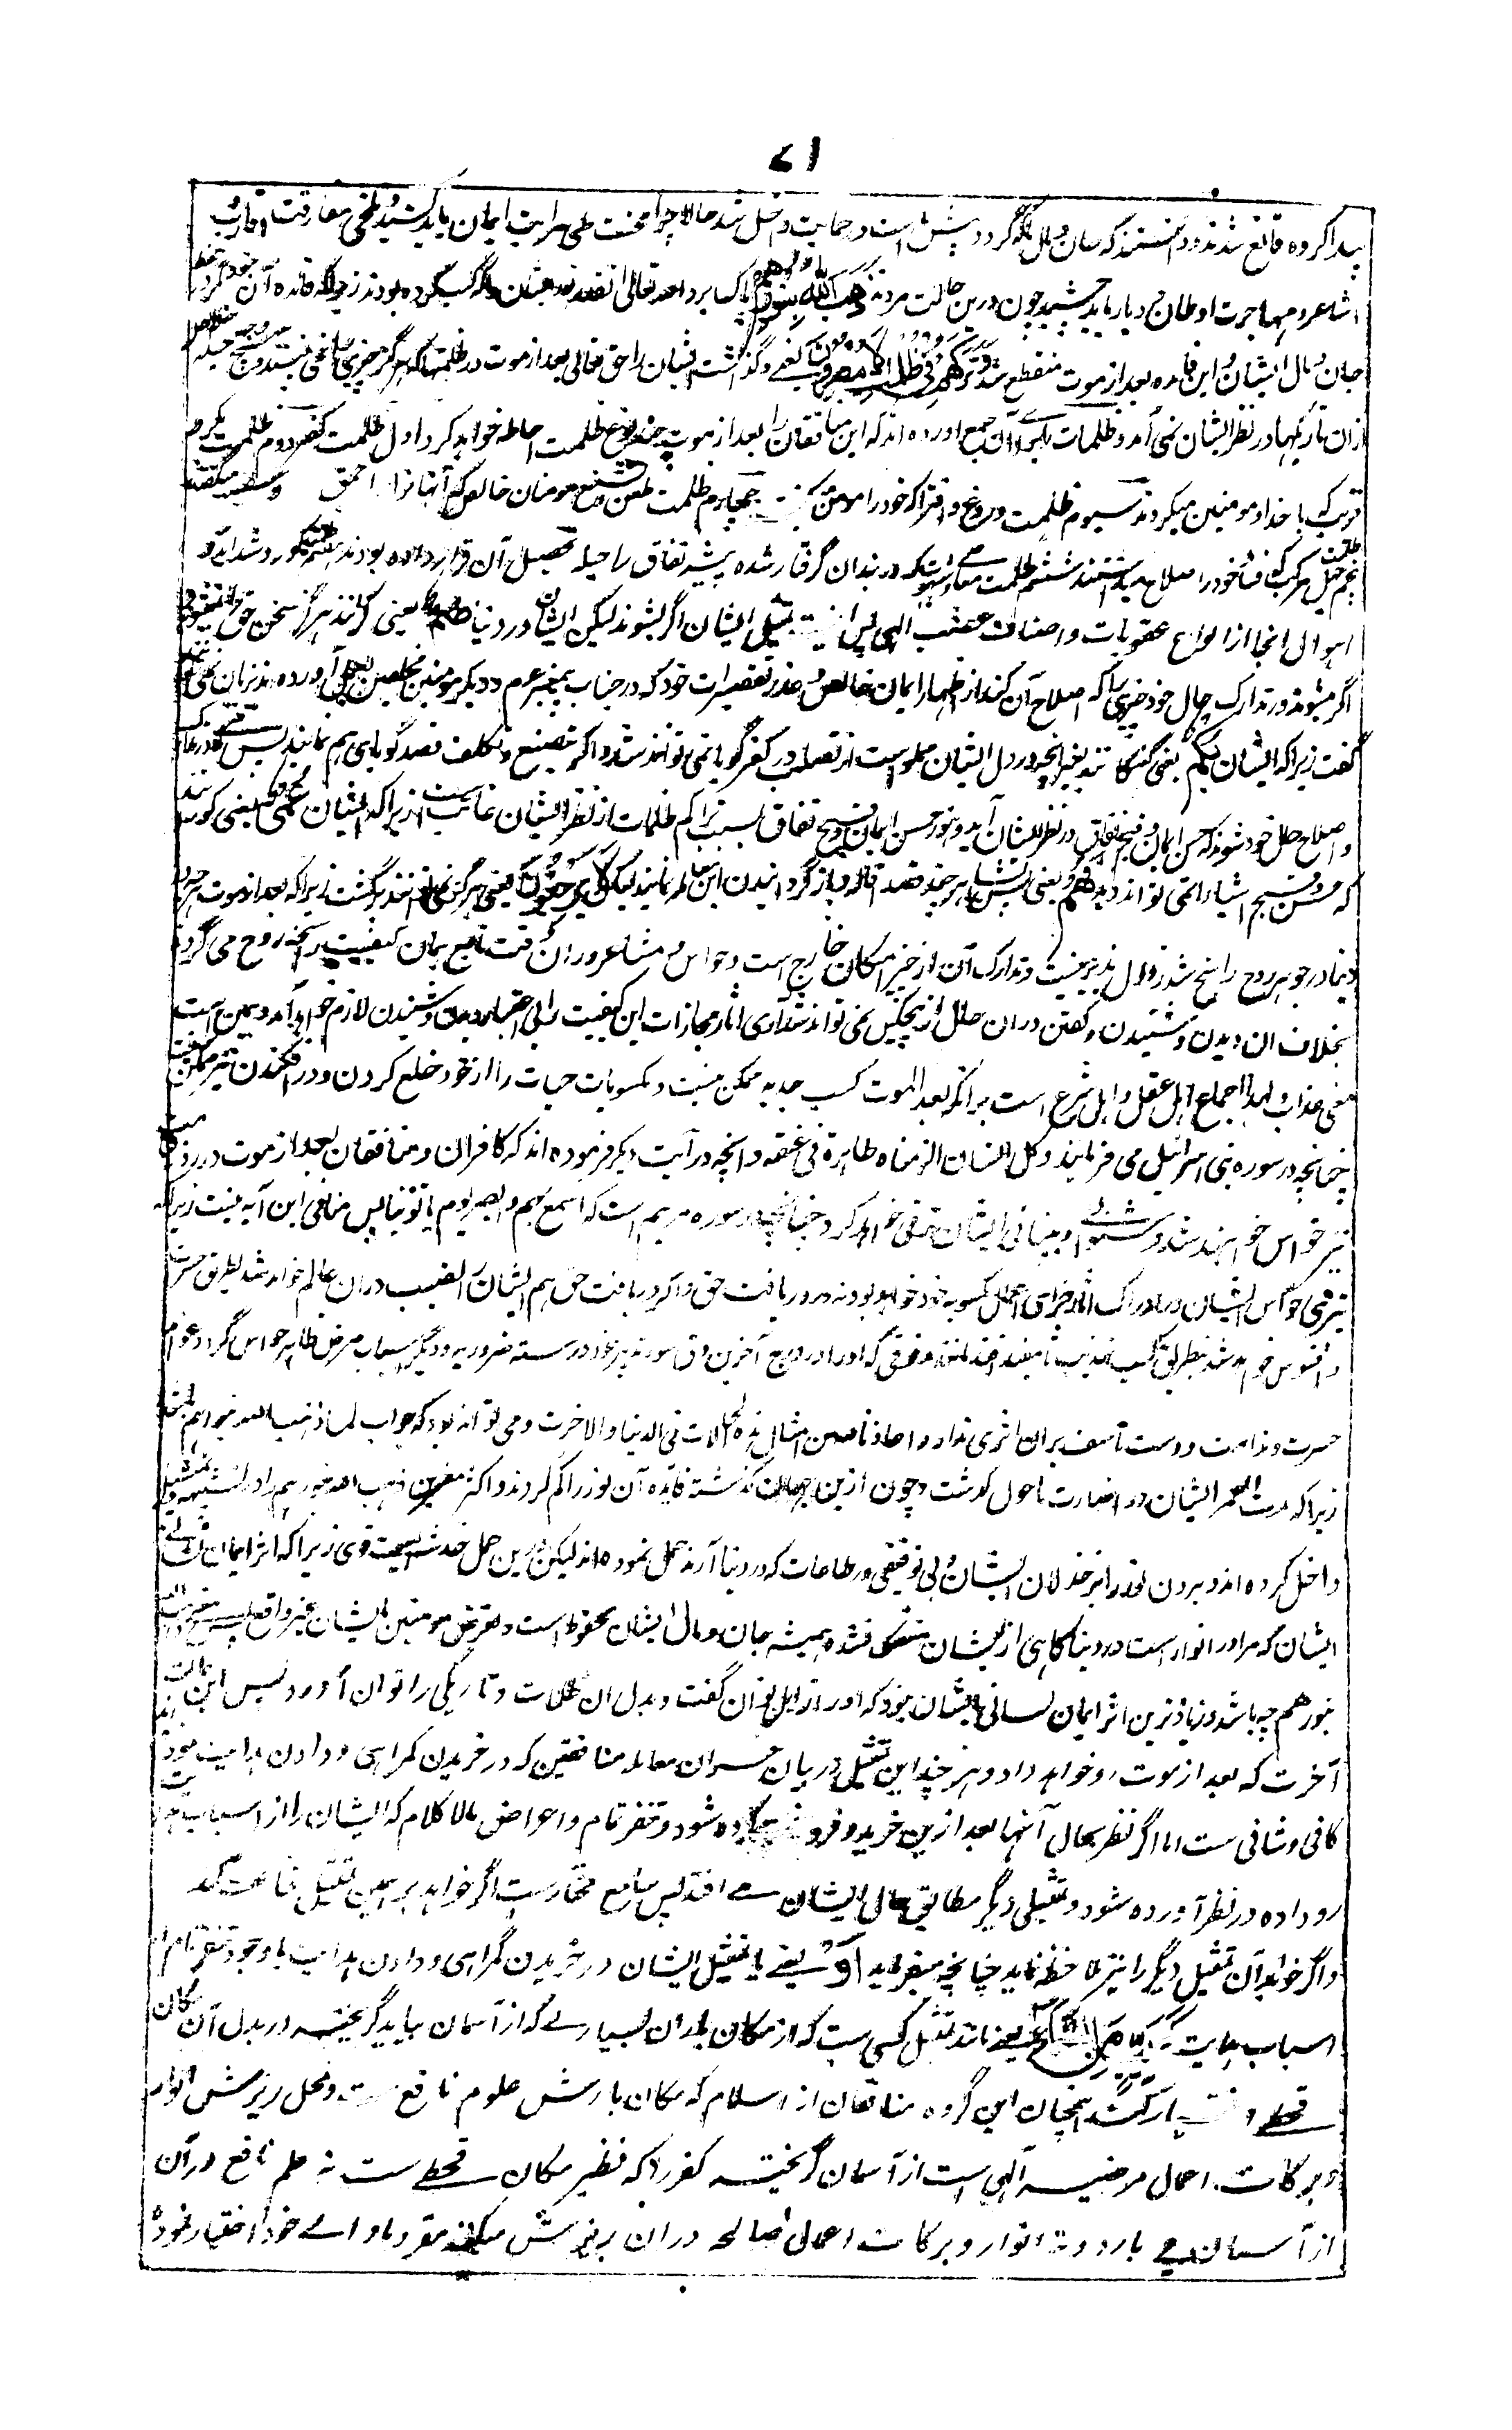 ۷۱
پیدا کرده قانع شدند و دانستند که جان و مال ما که گرد و پیش ماست در حمایت داخل شد حالا چرا محنت طی مراتب ایمان باید کشید و تلخی مفارقت اقارب
و عشایر و مهاجرت اوطان و دیار باید چشید چون درین حالت مردند ذهب الله بنورهم پاک ببرد الله تعالی آنقدر نور ایشان را که کسب کرده بودند زیرا که فائده آن نور حفظ
جان و مال ایشان و این فائده بعد از موت منقطع شد و ترکهم فی ظلمات لا یبصرون یعنی و گذاشت ایشان را حق تعالی بعد از موت در ظلمتها که هرگز چیزی نمی بینند و هیچ حیله
ازان تاریکیها در نظر ایشان نمی آمد و ظلمات را برای آن جمع آورده اند که این منافقان را بعد از موت چند نوع ظلمت احاطه خواهد کرد اول ظلمت کفر دوم ظلمت مکر و
فریب که با خدا و مومنین میکردند سیوم ظلمت دروغ و افترا که خود را مومن چهارم ظلمت طعن و تشنیع مومنان خالص که آنها را احمق و سفیه میگفتند
پنجم جهل مرکب که فساد خود را صلاح میدانستند ششم ظلمت معاصی و شهوات که در بندان گرفتار شده پیشه نفاق را حیله تحصیل آن قرار داده بودند هفتم ظلمت گور و شداید و
اهوال آنجا از انواع عقوبات و اصناف غضب الهی پس این است تمثیل ایشان اگر بشنوند لیکن ایشان در دنیا صم یعنی کرانند هرگز سخن حق را نمیشنوند
اگر میشنوند در تدارک حال خود چیزی را که اصلاح آن کند از اظهار ایمان خالص و عذر تقصیرات خود که در جناب پیغمبر عم و دیگر مومنین مخلصین بعمل آورده اند بزبان نمی توانند
گفت زیرا که ایشان بکم یعنی گنگانند بغیر آنچه در دل ایشان مملو است از تصلب در کفر گویا نمی توانند شد و اگر بتصنع و تکلف قصد گویائی هم نمایند پس تدارک
و اصلاح حال خود شوند که حسن ایمان و قبح نفاق در نظر ایشان آید و نور حسن ایمان و قبح نفاق بسبب تراکم ظلمات از نظر ایشان غائب است زیرا که ایشان عمی یعنی کورانند
که حسن و قبح اشیاء را نمی توانند دید فهم یعنی پس ایشان هر چند قصد اقاله و باز گردانیدن این معامله نمایند لیکن لا یرجعون یعنی هرگز نمی توانند برگشت زیرا که بعد از موت هر چه در
دنیا در جوهر روح راسخ شد زوال پذیر نیست و تدارک آن از حیز امکان خارج است و حواس و مشاعر در آن وقت تابع همان کیفیت راسخه روح می گردد
بخلاف آن دیدن و شنیدن و گفتن دران حال از هیچکس نمی تواند شد آری آثار و مجازات این کیفیت را بی اختیار دیدن و شنیدن لازم خواهد آمد و همین است
معنی عذاب و لهذا اجماع اهل عقل و اهل شرع است برانکه بعد الموت کسب جدید ممکن نیست و مکسوبات حیات را از خود خلع کردن و در افکندن نیز ممکن نیست
چنانچه در سوره بنی اسرائیل می فرمایند و کل انسان الزمناه طایره فی عنقه و آنچه در آیت دیگر فرموده اند که کافران و منافقان بعد از موت در روز
تیز حواس خواهند شد و شنوائی و بینائی ایشان ترقی خواهد کرد چنانچه در سوره مریم است که اسمع بهم و ابصر یوم یاتوننا پس منافی این آیه نیست زیرا که
تیز شدن حواس ایشان در ادراک آثار و جزای اعمال مکسوبه خود خواهد بود نه در دریافت حق و اگر دریافت حق هم ایشان را نصیب دران عالم خواهد شد بطریق حسرت
و افسوس خواهد شد نه بطریق کسب
حسرت و ندامت و دست تاسف بران اثری ندارد اعاذنا الله من امثال هذه الحالات فی الدنیا و الاخرت و می تواند بود که جواب لما ذهب الله بنورهم باشد
زیرا که مدت العمر ایشان در اضاءت ماحول گذشت و چون ازین جهان گذشته فائده آن نور را گم کردند و اکثر مفسرین ذهب الله بنورهم را در تشبیه و تمثیل
داخل کرده اند و بردن نور را بر خذلان ایشان و بی توفیقی در طاعات که در دنیا آرند حمل نموده اند لیکن درین حمل خدشه ایست قوی زیرا که اثر ایمان
ایشان که مراد از نور است در دنیا گاهی از ایشان منفک نشده همیشه جان و مال ایشان محفوظ است و تعرض مومنین بایشان غیر واقع
بنورهم چه باشد و زیاده ترین اثر ایمان لسانی بایشان نبود که او را زایل توان گفت و بدل آن ظلمات و تاریکی را توان آورد پس این حالت
آخرت که بعد از موت رو خواهد داد و هر چند این تمثیل در بیان خسران معامله منافقین که در خریدن گمراهی و دادن هدایت نمودند
کافی و شافی ست اما اگر نظر بحال آنها بعد ازین خرید و فروخت کرده شود و تنفر تام و اعراض مالا کلام که ایشان را از اسباب هدایت
رو داده در نظر آورده شود و تمثیلی دیگر مطابق حال ایشان می افتد پس سامع مختار است اگر خواهد بر همین تمثیل قناعت کند
و اگر خواهد آن تمثیل دیگر را نیز ملاحظه نماید چنانچه میفرماید او یعنی یا تمثیل ایشان در خریدن گمراهی و دادن هدایت با وجود تنفر تام از
اسباب هدایت یعنی مانند تمثیل کسی ست که از مکان باران بسیار که از آسمان بیاید گریخته در بدل آن مکان
قحط و همچنان این گروه منافقان از اسلام که مکان بارش علوم نافع ست و محل ریزش انوار
و برکات اعمال مرضیه الهی است از آسمان گریخته کفر را که نظیر مکان قحط ست نه علم نافع در آن
از آسمان می بارد و نه انوار و برکات اعمال صالحه دران ریزش میکند مقر و ماوای خود اختیار نموده